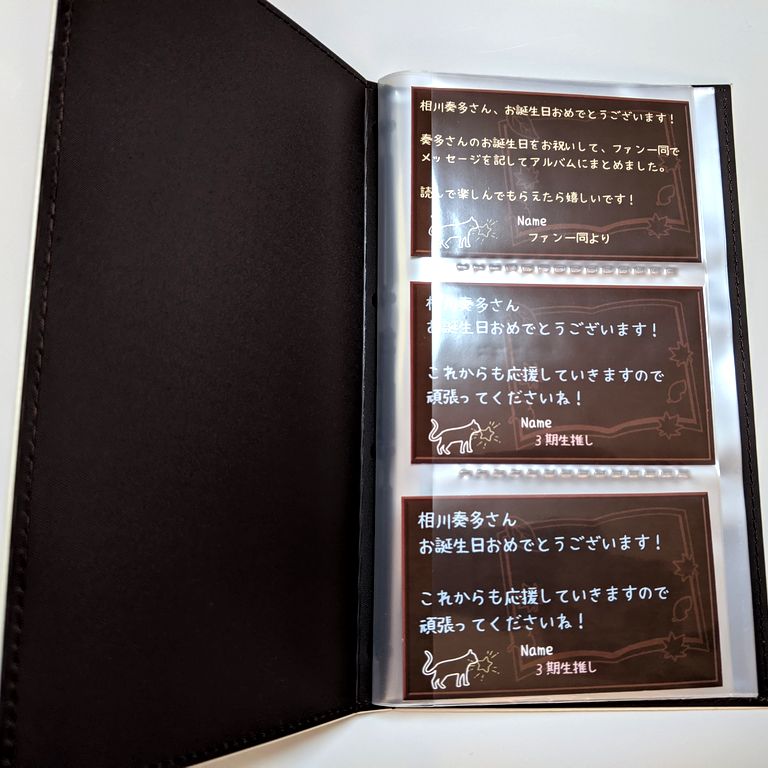 相川奏多さん、お誕生日おめでとうございます！
奏多さんのお誕生日をお祝いして、ファン一同で
メッセージを記してアルバムにまとめました。
読んで楽しんでもらえたら嬉しいです！
Name
ファン一同より
相川奏多さん
お誕生日おめでとうございます！
これからも応援していきますので
頑張ってくださいね！
Name
3期生推し
相川奏多さん
お誕生日おめでとうございます！
これからも応援していきますので
頑張ってくださいね！
Name
3期生推し